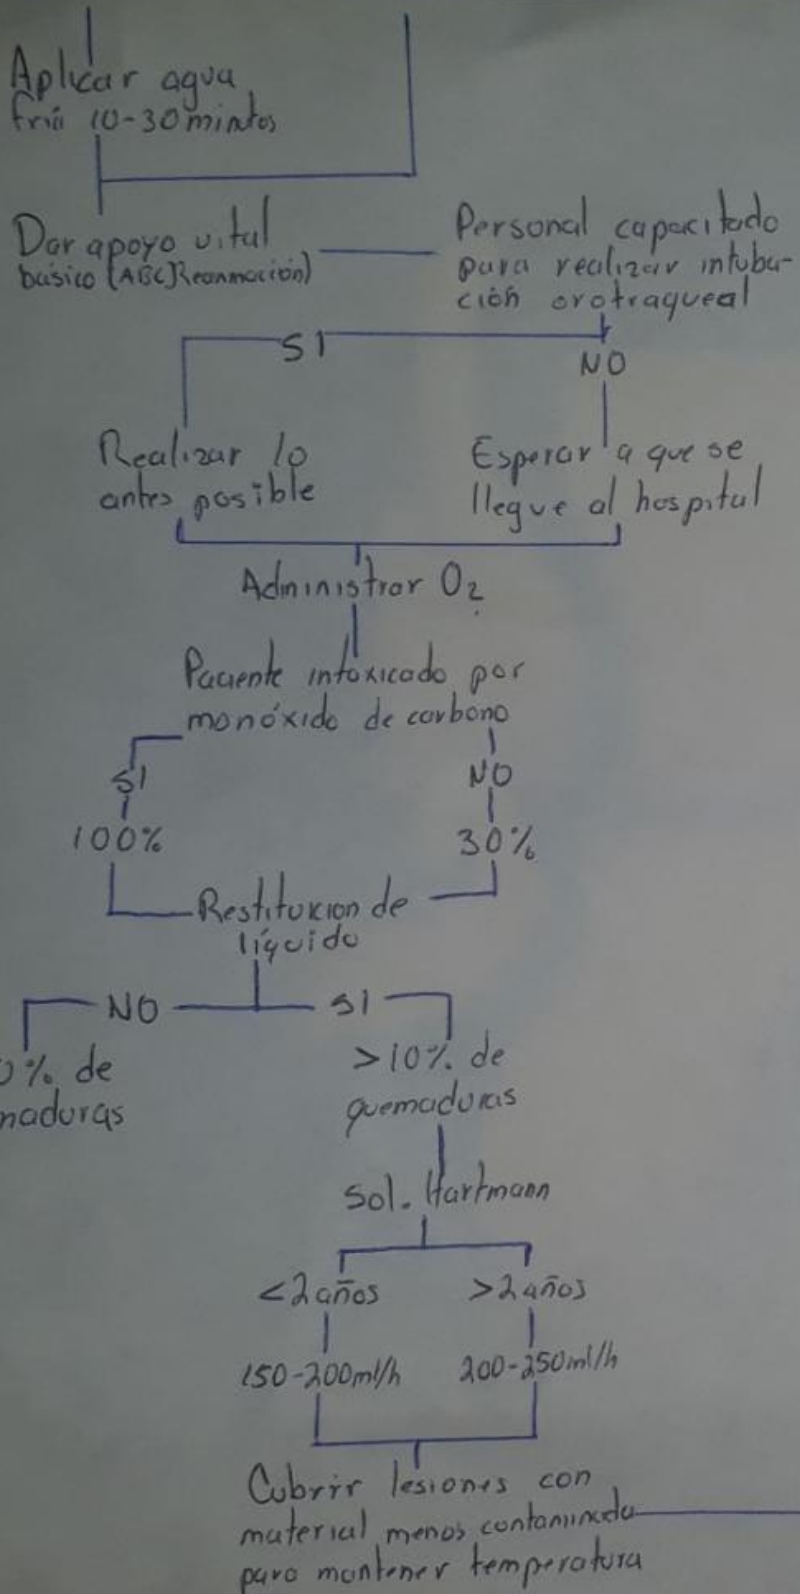 Aplicar agua
fría 10-30 mintos
Dar apoyo vital
básico (ABC]Reanmación)
Personal capacitado
para realizar intuba-
ción orotraqueal
SI
NO
Realizar lo
antes posible
Esperar a que se
llegue al hospital
Administrar O₂
Paciente intoxicado por
monóxido de carbono
SI
NO
100%
30%
Restitución de
líquido
NO
SI
0% de
maduras
>10% de
quemaduras
Sol. Hartmann
<2 años
>2 años
150-200ml/h
200-250ml/h
Cubrir lesiones con
material menos contaminado
para mantener temperatura